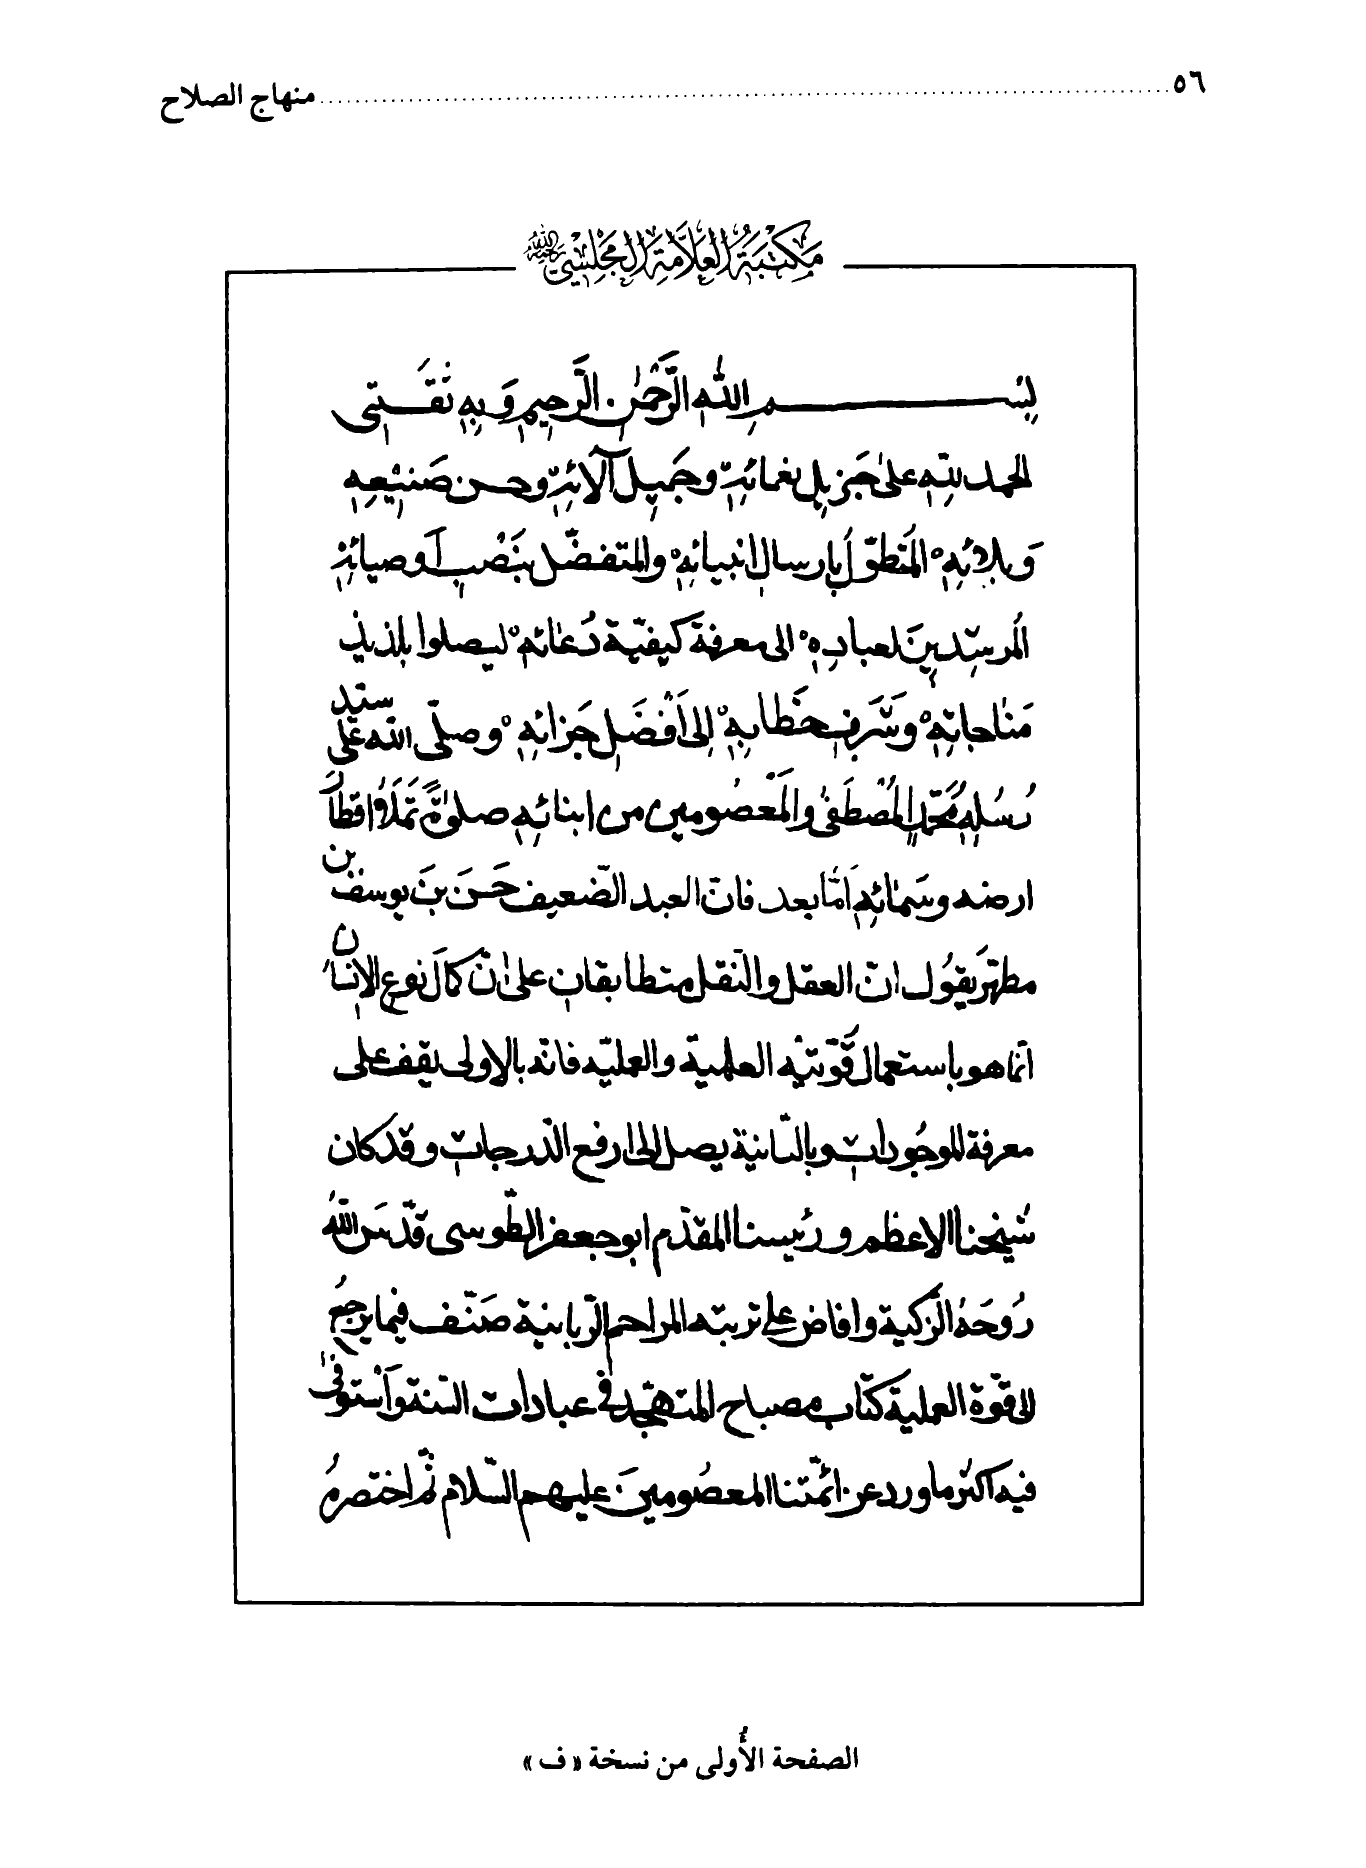 ٥٦ ........ منهاج الصلاح
مكتبة العلامة المجلسي رحمه الله
بِسْمِ اللهِ الرَّحْمٰنِ الرَّحِيمِ وَبِهِ ثِقَتِى
الحمد للهِ على جَزيلِ نعمائِهِ وجَميلِ آلائِهِ وحسن صَنيعِهِ
وَبلائِهِ المُتطوّلِ بإرسالِ انبيائِهِ والمتفضّل بنَصْبِ أوصيائِهِ
المُرشِدينَ لعبادِهِ الى معرفة كيفيّة دُعائِهِ ليصلوا بلذيذ
مَناجاتِهِ وَشَرفِ خطابِهِ إلى أفْضَلِ جَزائِهِ وصلّى الله على سيّد
رُسُلِهِ مُحَمّدٍ المُصْطَفىٰ والمَعْصُومين من ابنائِهِ صلوٰةً تَملَأُ اقطارَ
ارضه وسَمائِهِ أمّا بعد فانّ العبد الضّعيف حَسَنَ بنَ يوسف بن
مطهّر يقُول انّ العقل والنّقل متطابقانِ على انّ كمالَ نوع الانسان
انّما هو باستعمال قُوّتيْه العلمية والعمليّه فانّه بالاولى يقف على
معرفة الموجُوداتِ وبالثانية يصل الى ارفع الدّرجاتِ وقد كان
شيخنا الاعظم ورئيسنا المقدّم ابو جعفر الطّوسى قدّسَ اللّٰه
رُوحَهُ الزّكية وافاض على تربته المراحم الرّبانية صَنّف فيما يرجعُ
الى قوّة العملية كتاب مصباح المتهجّد فى عبادات السّنة واَستوفىٰ
فيه اكثر ما ورد عن ائمّتنا المعصُومينَ عليهم السّلام ثمّ اختصرهُ
الصفحة الأُولى من نسخة « ف »